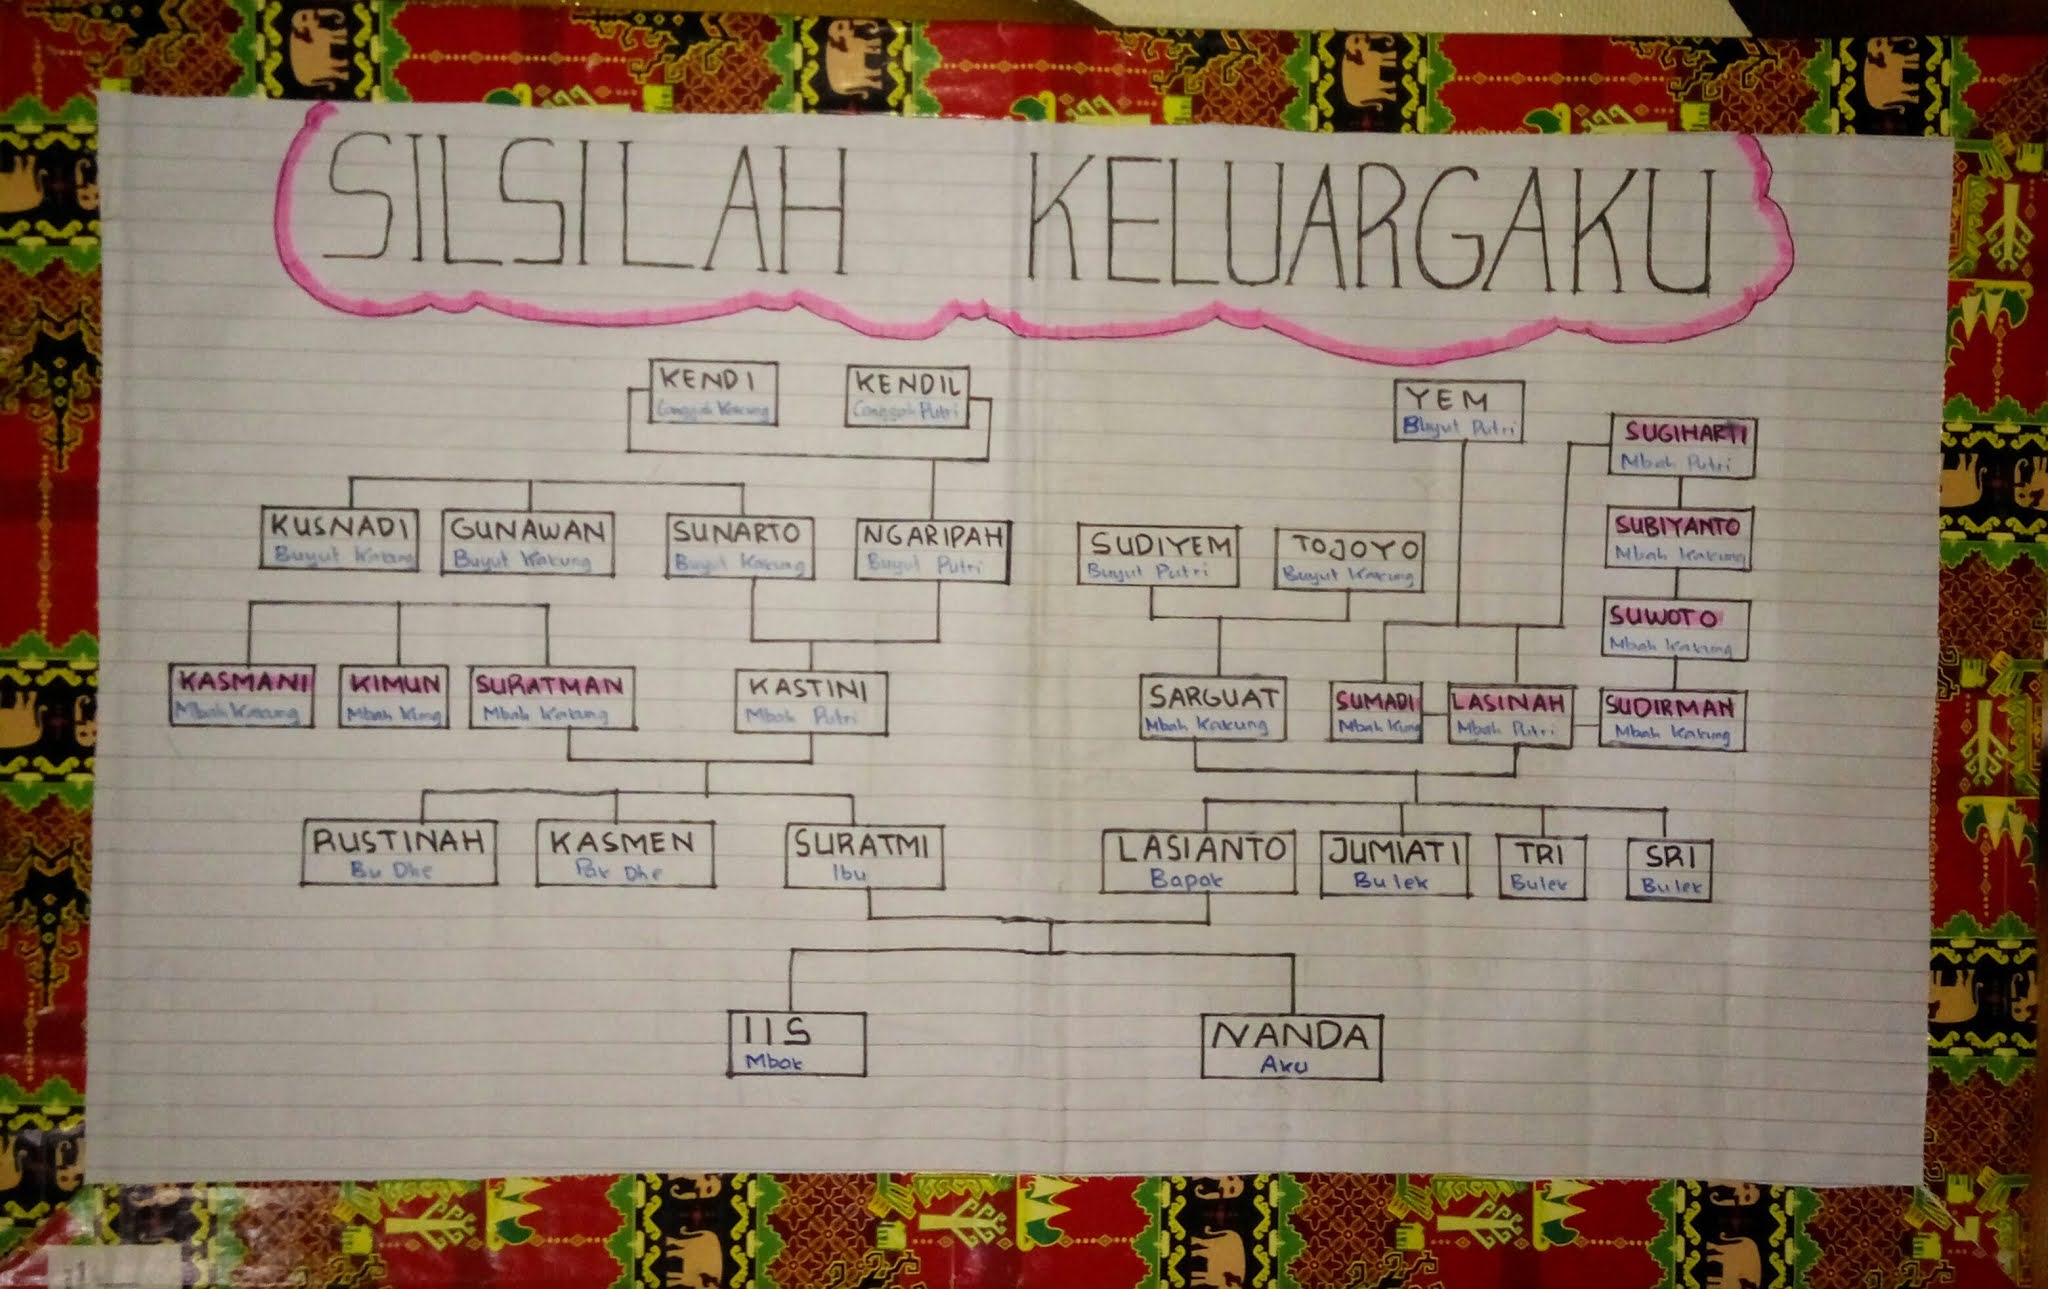 SILSILAH KELUARGAKU
KENDI
Canggah Kakung
KENDIL
Canggah Putri
YEM
Buyut Putri
SUGIHARTI
Mbah Putri
KUSNADI
Buyut Kakung
GUNAWAN
Buyut Kakung
SUNARTO
Buyut Kakung
NGARIPAH
Buyut Putri
SUDIYEM
Buyut Putri
TOJOYO
Buyut Kakung
SUBIYANTO
Mbah Kakung
SUWOTO
Mbah Kakung
KASMANI
Mbah Kakung
KIMUN
Mbah Kung
SURATMAN
Mbah Kakung
KASTINI
Mbah Putri
SARGUAT
Mbah Kakung
SUMADI
Mbah Kung
LASINAH
Mbah Putri
SUDIRMAN
Mbah Kakung
RUSTINAH
Bu Dhe
KASMEN
Pak Dhe
SURATMI
Ibu
LASIANTO
Bapak
JUMIATI
Bulek
TRI
Bulek
SRI
Bulek
IIS
Mbak
NANDA
Aku